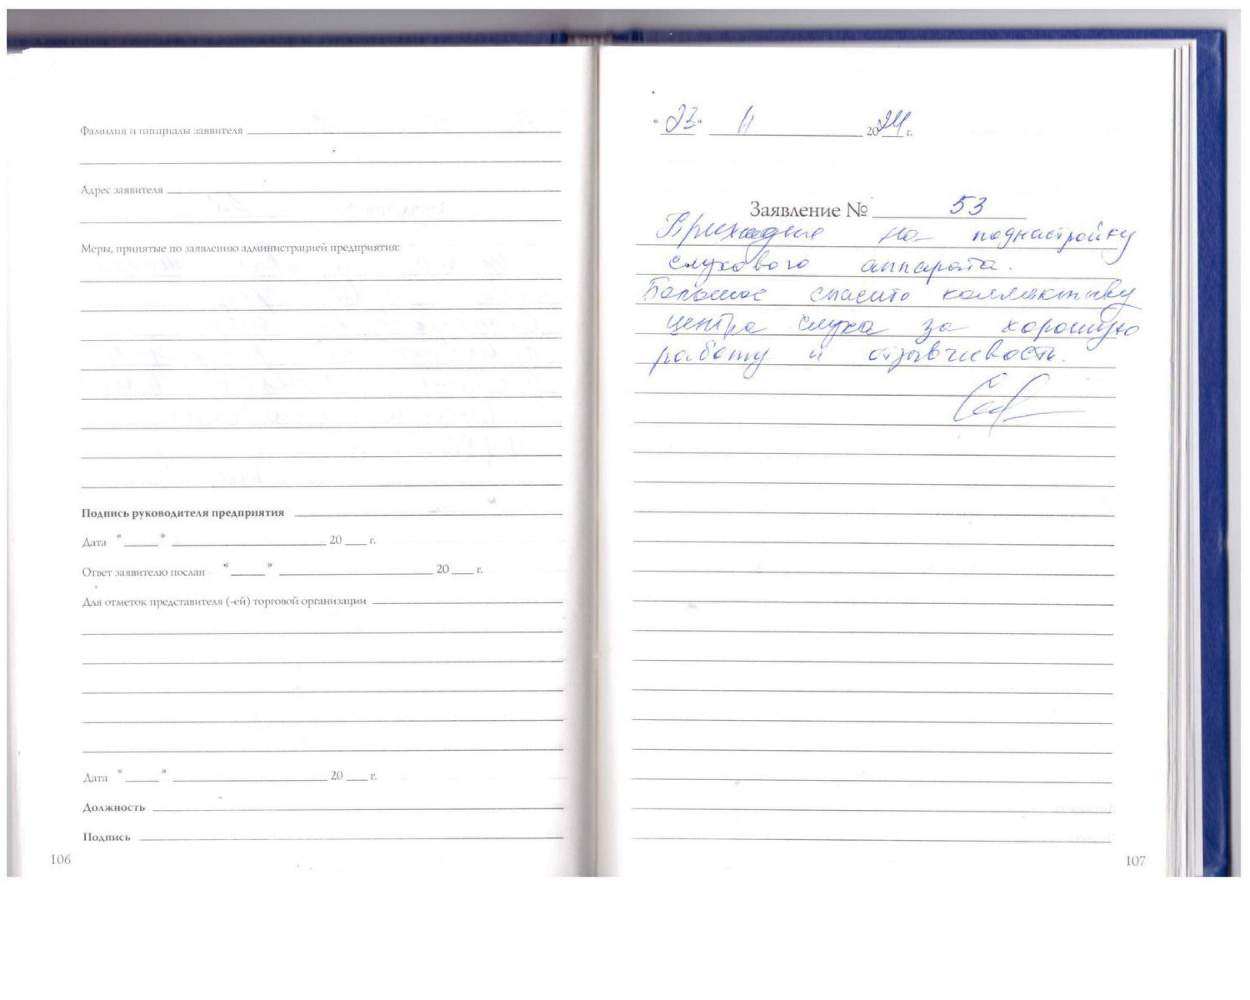 Фамилия и инициалы заявителя
Адрес заявителя
Меры, принятые по заявлению администрацией предприятия:
Подпись руководителя предприятия
Дата "_____" ____________________ 20 ___ г.
Ответ заявителю послан "_____" ____________________ 20 ___ г.
Для отметок представителя (-ей) торговой организации
Дата "_____" ____________________ 20 ___ г.
Должность
Подпись
106
"23" 11 2024 г.
Заявление № 53
Приходила на поднастройку
слухового аппарата.
Большое спасибо коллективу
центра слуха за хорошую
работу и отзывчивость.
107